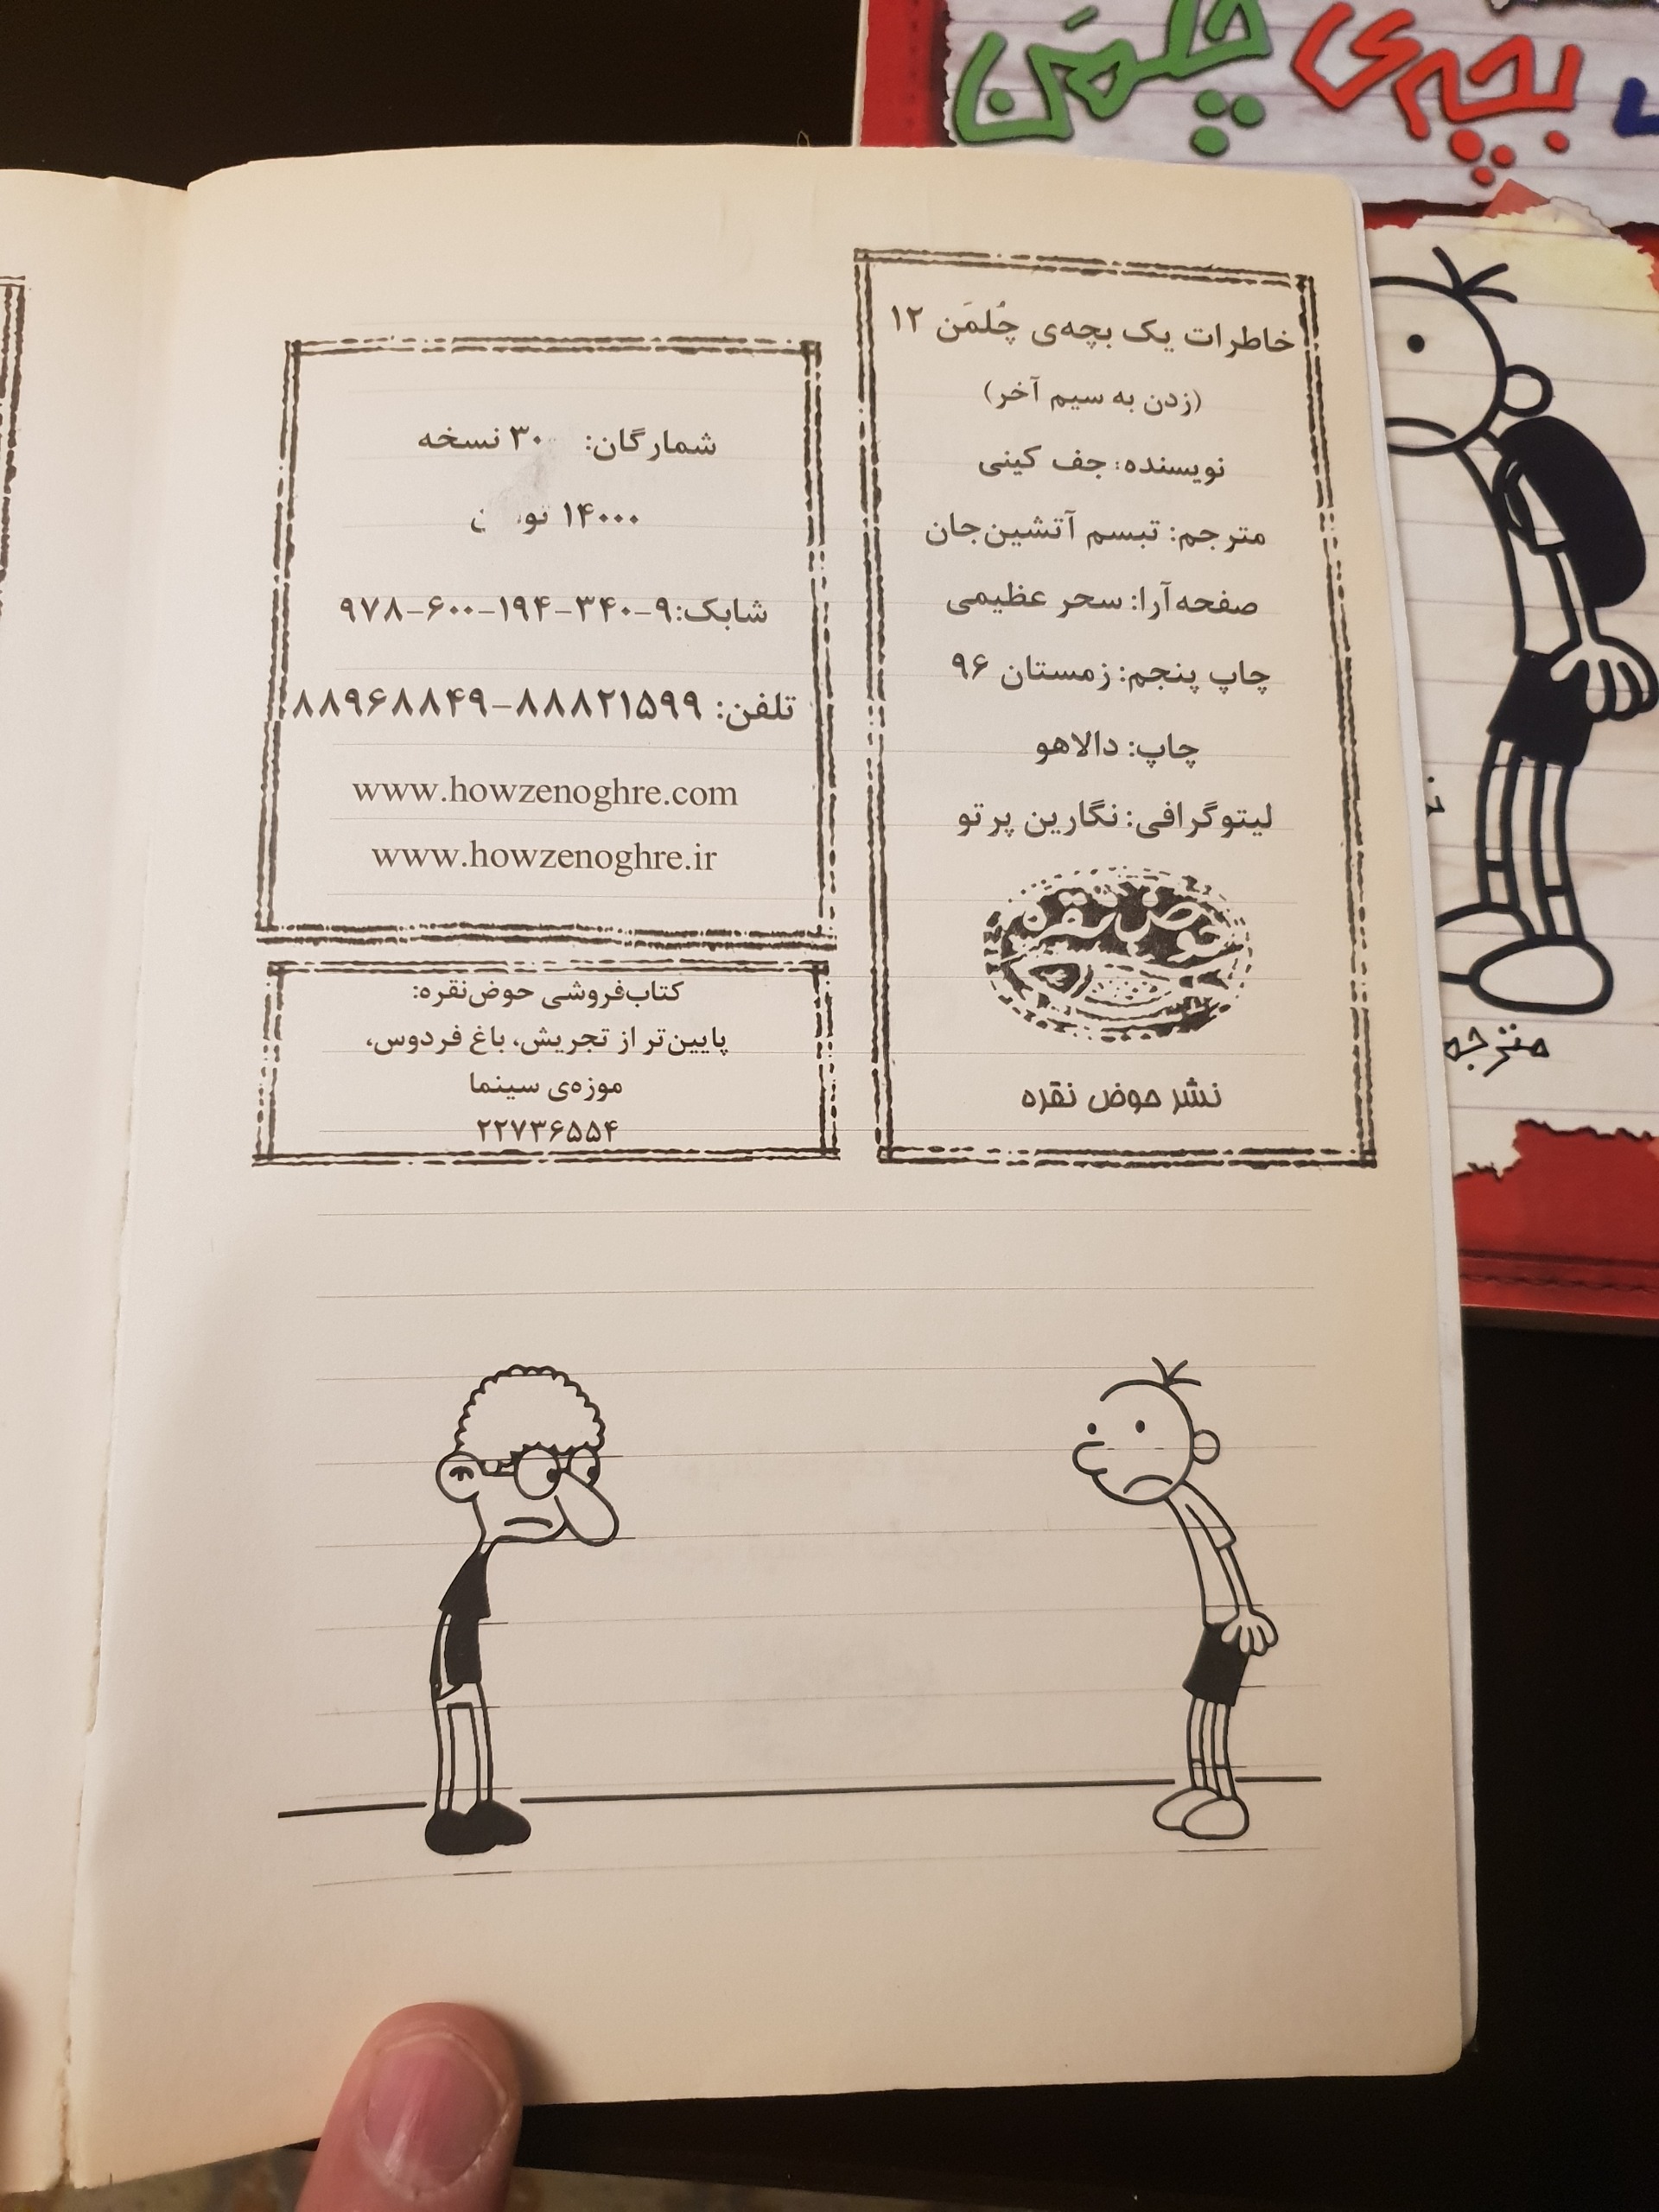 بچه‌ی چلمَن
خاطرات یک بچه‌ی چُلمَن ۱۲
(زدن به سیم آخر)
نویسنده: جف کینی
مترجم: تبسم آتشین‌جان
صفحه‌آرا: سحر عظیمی
چاپ پنجم: زمستان ۹۶
چاپ: دالاهو
لیتوگرافی: نگارین پرتو
حوض نقره
نشر حوض نقره
شمارگان: ۳۰ نسخه
۱۴۰۰۰
شابک: ۹-۳۴۰-۱۹۴-۶۰۰-۹۷۸
تلفن: ۸۸۸۲۱۵۹۹-۸۸۹۶۸۸۴۹
www.howzenoghre.com
www.howzenoghre.ir
کتاب‌فروشی حوض‌نقره:
پایین‌تر از تجریش، باغ فردوس،
موزه‌ی سینما
۲۲۷۳۶۵۵۴